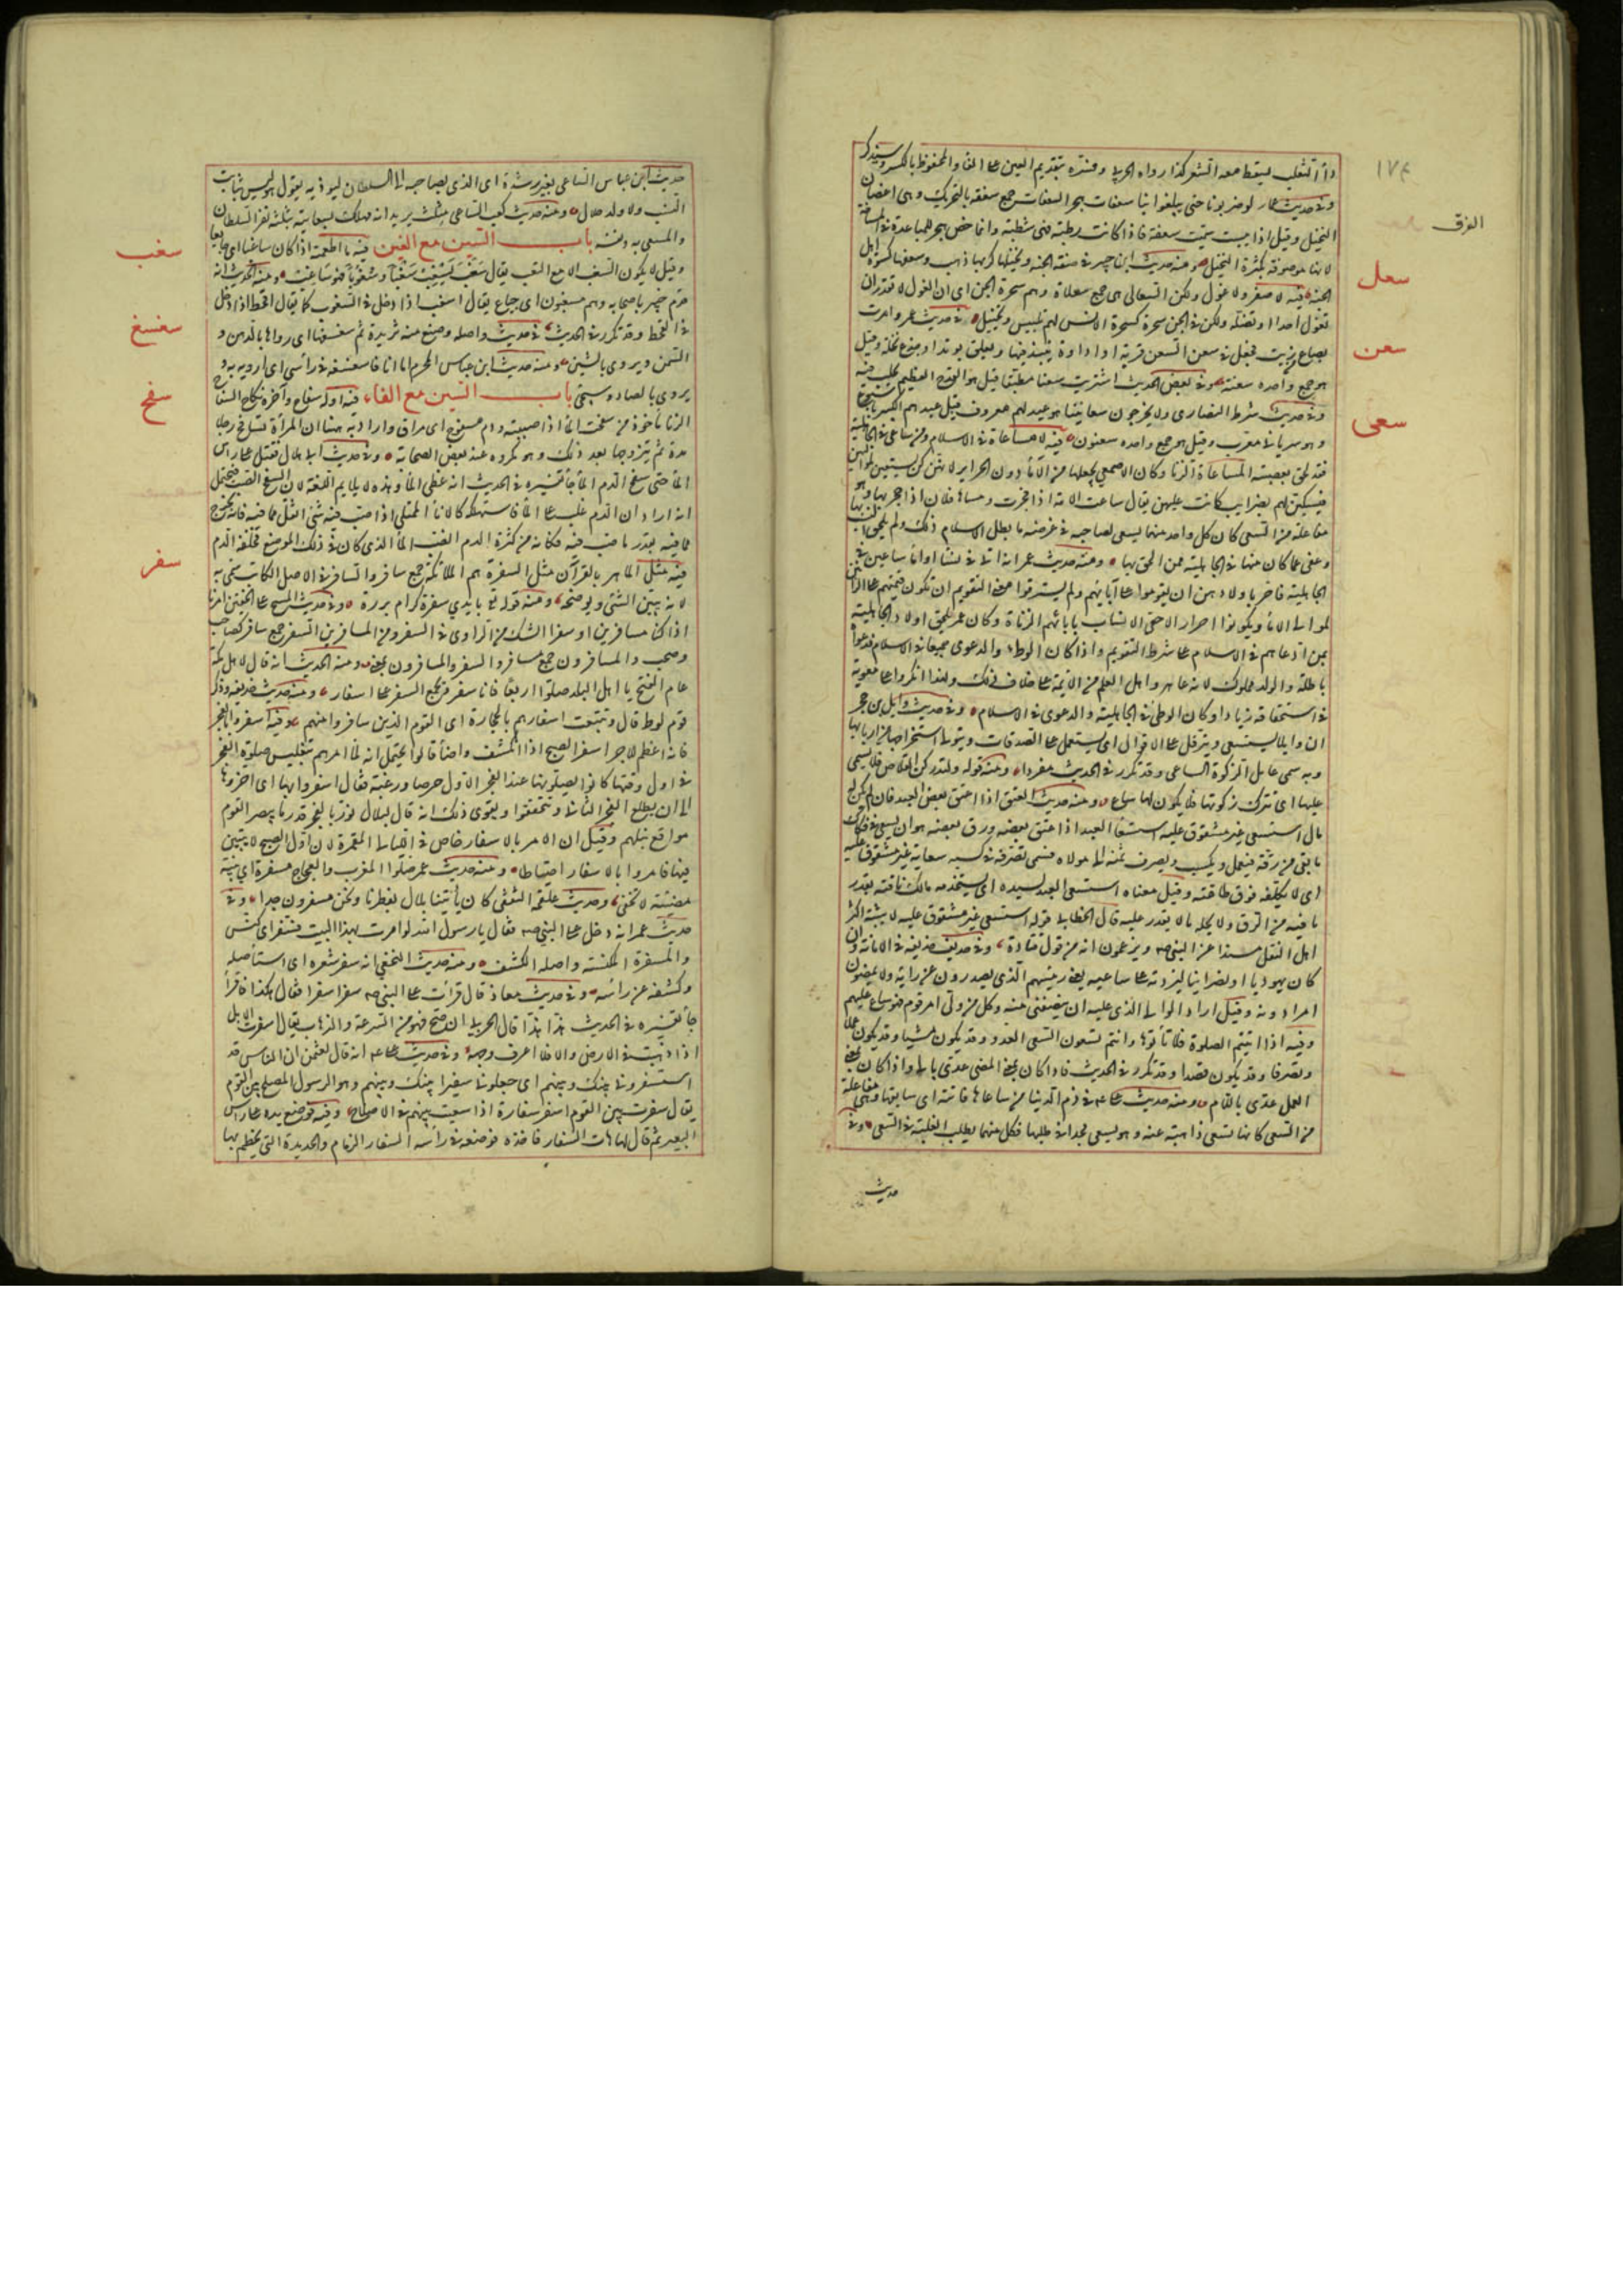 ١٧٤
الفرق
سعل
سعن
سعى
داء الثعلب يسقط معه الشعر كذا رواه الحربى وفسره بتقديم العين على الفاء والمحفوظ بالعكس وسيذكر
وفى حديث عمار لو ضربونا حتى يبلغوا بنا سعفات هجر السعفات جمع سعفة بالتحريك وهى اغصان
النخيل وقيل اذا يبست سميت سعفة فاذا كانت رطبة فهى شطبة وانما خص هجر للمباعدة فى المسافة
لانها موصوفة بكثرة النخيل ومنه حديث ابن جبير فى صفة الجنة ونخيلها كربها ذهب وسعفها كسوة اهل
الجنة فيه لا صفر ولا غول ولكن السعالى هى جمع سعلاة وهم سحرة الجن اى ان الغول لا تقدر ان
تغول احدا او تضله ولكن فى الجن سحرة كسحرة الانس لهم تلبيس وتخييل فى حديث عمر وامرت
بصاع زبيب فجعل فى سعن السعن قربة او اداوة ينتبذ فيها ويعلق بوتد او جذع نخلة وقيل
هو جمع واحده سعنة وفى بعض الحديث اشتريت سعنا مطبقا قيل هو القدح العظيم يحلب فيه
وفى حديث شرط النصارى ولا يخرجون سعانينا هو عيد لهم معروف قبل عيدهم الكبير باسبوع
وهو سريانى معرب وقيل هو جمع واحده سعنون فيه لا مساعاة فى الاسلام ومن ساعى فى الجاهلية
فقد لحق بعصبته المساعاة الزنا وكان الاصمعى يجعلها من الاماء دون الحراير لانهن كن يسعين لمواليهن
فيكسبن لهم بضرايب كانت عليهن يقال ساعت الامة اذا فجرت وساعاها فلان اذا فجر بها وهو
مفاعلة من السعى كان كل واحد منهما يسعى لصاحبه فى غرضه فابطل الاسلام ذلك ولم يلحق النسب بها
وعفى عما كان منها فى الجاهلية ممن الحق بها ومنه حديث عمر انه اتى فى نساء او اماء ساعين فى
الجاهلية فامر باولادهن ان يقوموا على آبائهم ولم يسترقوا معنى التقويم ان تكون قيمتهم على الزانين
لموالى الاماء ويكونوا احرارا لاحقى الانساب بآبائهم الزناة وكان عمر يلحق اولاد الجاهلية
بمن ادعاهم فى الاسلام على شرط التقويم واذا كان الوطء والدعوى جميعا فى الاسلام فدعواه
باطلة والولد مملوك لانه عاهر واهل العلم من الائمة على خلاف ذلك ولهذا انكروا على معوية
فى استلحاقه زيادا وكان الوطى فى الجاهلية والدعوى فى الاسلام وفى حديث وايل بن حجر
ان وايلا يستسعى ويترفل على الاقوال اى يستعمل على الصدقات ويتولى استخراجها من اربابها
وبه سمى عامل الزكوة الساعى وقد تكرر فى الحديث مفردا ومنه قوله ولتدركن القلاص فلا يسعى
عليها اى تترك زكوتها فلا يكون لها ساع ومنه حديث العتق اذا اعتق بعض العبد فان لم يكن له
مال استسعى غير مشقوق عليه استسعاء العبد اذا عتق بعضه ورق بعضه هو ان يسعى فى فكاك
ما بقى من رقه فيعمل ويكسب ويصرف ثمنه الى مولاه فسمى تصرفه فى كسبه سعاية غير مشقوق عليه
اى لا يكلفه فوق طاقته وقيل معناه استسعى العبد لسيده اى يستخدمه مالك باقيه بقدر
ما فيه من الرق ولا يحمله ما لا يقدر عليه قال الخطابى قوله استسعى غير مشقوق عليه لا يثبته اكثر
اهل النقل مسندا عن النبى صم ويزعمون انه من قول قتادة وفى حديث حذيفة فى الامانة وان
كان يهوديا او نصرانيا ليردنه على ساعيه يعنى رئيسهم الذى يصدرون عن رايه ولا يمضون
امرا دونه وقيل اراد الوالى الذى عليه ان ينصفنى منه وكل من ولى امر قوم فهو ساع عليهم
وفيه اذا اتيتم الصلوة فلا تأتوها وانتم تسعون السعى العدو وقد يكون مشيا وقد يكون عملا
وتصرفا وقد يكون قصدا وقد تكرر فى الحديث فاذا كان بمعنى المضى عدى بالى واذا كان بمعنى
العمل عدى باللام ومنه حديث على عم فى ذم الدنيا من ساعاها فاتته اى سابقها وهى مفاعلة
من السعى كانها تسعى ذاهبة عنه وهو يسعى مجدا فى طلبها فكل منهما يطلب الغلبة فى السعى وفى
حديث
سغب
سغسغ
سفح
سفر
حديث ابن عباس الساعى لغير رشدة اى الذى يسعى بصاحبه الى السلطان ليوذيه يقول هو ليس بثابت
النسب ولا ولد حلال ومنه حديث كعب الساعى مثلث يريد انه مهلك بسعايته ثلثة نفر السلطان
والمسعى به ونفسه باب السين مع الغين فيه ما اطعمته اذا كان ساغبا اى جايعا
وقيل لا يكون السغب الا مع التعب يقال سغب يسغب سغبا وسغوبا فهو ساغب ومنه الحديث انه
قدم خيبر باصحابه وهم مسغبون اى جياع يقال اسغب اذا دخل فى السغوب كما يقال اقحط اذا دخل
فى القحط وقد تكرر فى الحديث فى حديث واصله وصنع منه ثريدة ثم سغسغها اى رواها بالدهن و
السمن ويروى بالشين ومنه حديث ابن عباس المحرم اما انا فاسغسغه فى راسى اى ارويه به و
يروى بالصاد وسيجئ باب السين مع الفاء فيه اوله سفاح وآخره نكاح السفاح
الزنا مأخوذ من سفحت الماء اذا صببته ودم مسفوح اى مراق واراد به هنا ان المرأة تسافح رجلا
مدة ثم يتزوجها بعد ذلك وهو مكروه عند بعض الصحابة وفى حديث ابى هلال فقتل على رأس
الماء حتى سفح الدم الماء جاء تفسيره فى الحديث انه غطى الماء وهذه لا يلايم اللغة لان السفح الصب فيحتمل
انه اراد ان الدم غلب على الماء فاستهلكه كالاناء الممتلى اذا صب فيه شئ اثقل مما فيه فانه يخرج
مما فيه بقدر ما صب فيه فكانه من كثرة الدم انصب الماء الذى كان فى ذلك الموضع فخلفه الدم
فيه مثل الماهر بالقرآن مثل السفرة هم الملائكة جمع سافر والسافر فى الاصل الكاتب سمى به
لانه يبين الشئ ويوضحه ومنه قوله تع بايدي سفرة كرام بررة وفى حديث المسح على الخفين امرنا
اذا كنا مسافرين او سفرا الشك من الراوى فى السفر ومن المسافرين السفر جمع سافر كصاحب
وصحب والمسافرون جمع مسافر والسفر والمسافرون بمعنى ومنه الحديث انه قال لاهل مكة
عام الفتح يا اهل البلد صلوا اربعا فانا سفر ويجمع السفر على اسفار ومنه حديث حذيفة وذكر
قوم لوط قال وتتبعت اسفارهم بالحجارة اى القوم الذين سافروا منهم وفيه اسفروا بالفجر
فانه اعظم للاجر اسفر الصبح اذا انكشف واضاء قالوا يحتمل انه لما امرهم بتغليس صلوة الفجر
فى اول وقتها كانوا يصلونها عند الفجر الاول حرصا ورغبة فقال اسفروا بها اى اخروها
الى ان يطلع الفجر الثانى وتتحققوا ويقوى ذلك انه قال لبلال نور بالفجر قدر ما يبصر القوم
مواقع نبلهم وقيل ان الامر بالاسفار خاص فى الليالى المقمرة لان اول الصبح لا يتبين
فيها فامروا بالاسفار احتياطا ومنه حديث عمر صلوا المغرب والفجاج مسفرة اى بينة
مضيئة لا تخفى وحديث علقمة الثقفى كان يأتينا بلال بفطرنا ونحن مسفرون جدا وفى
حديث عمر انه دخل على النبى صم فقال يا رسول الله لو امرت بهذا البيت فسفر اى كنس
والمسفرة المكنسة واصله الكشف ومنه حديث النخعى انه سفر شعره اى استأصله
وكشفه عن رأسه وفى حديث معاذ قال قرأت على النبى صم سفرا سفرا فقال هكذا فاقرأ
جاء تفسيره فى الحديث هذا هذا قال الحربى ان صح فهو من السرعة والذهاب يقال اسفرت الابل
اذا ذهبت فى الارض والا فلا اعرف وجهه وفى حديث على عم انه قال لعثمن ان الناس قد
استسفرونى بينك وبينهم اى جعلونى سفيرا بينك وبينهم وهو الرسول المصلح بين القوم
يقال سفرت بين القوم اسفر سفارة اذا سعيت بينهم فى الاصلاح وفيه فوضع يده على رأس
البعير ثم قال هات السفار فاخذه فوضعه فى رأسه السفار الزمام والحديدة التى يخطم بها